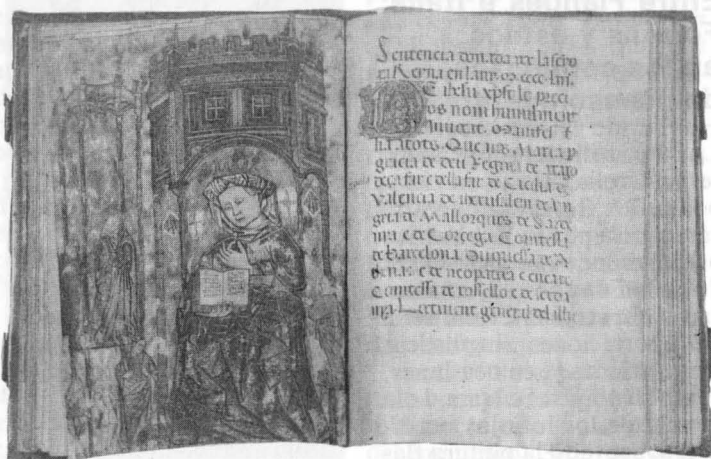 Sentencia donada per la sero
Reyna en lany M cccc
E ihesu xpst le preci
os nom humilment
Inuocat. Manifest
sia atots. Que nos Maria p
gracia de deu Regina de arago
deça far e della far de Cicilia de
Valencia de iherusalem de un
gria de Mallorques de Sarde
nya e de Corçega Comtessa
de Barcelona Duquessa de A
thenas e de neopatria e encara
Comtessa de rossello e de cerda
nya Loctinent general del illu